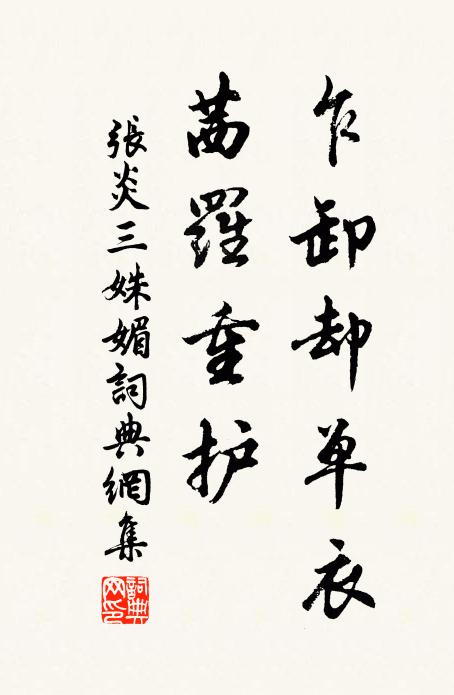 乍卸却单衣
茜羅重护
張炎三姝媚詞典網集
詞典网印